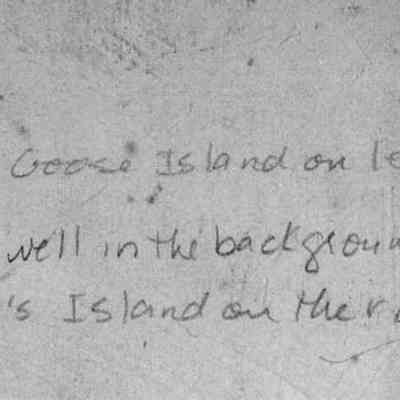 Goose Island on le
well in the backgroun
's Island on the r